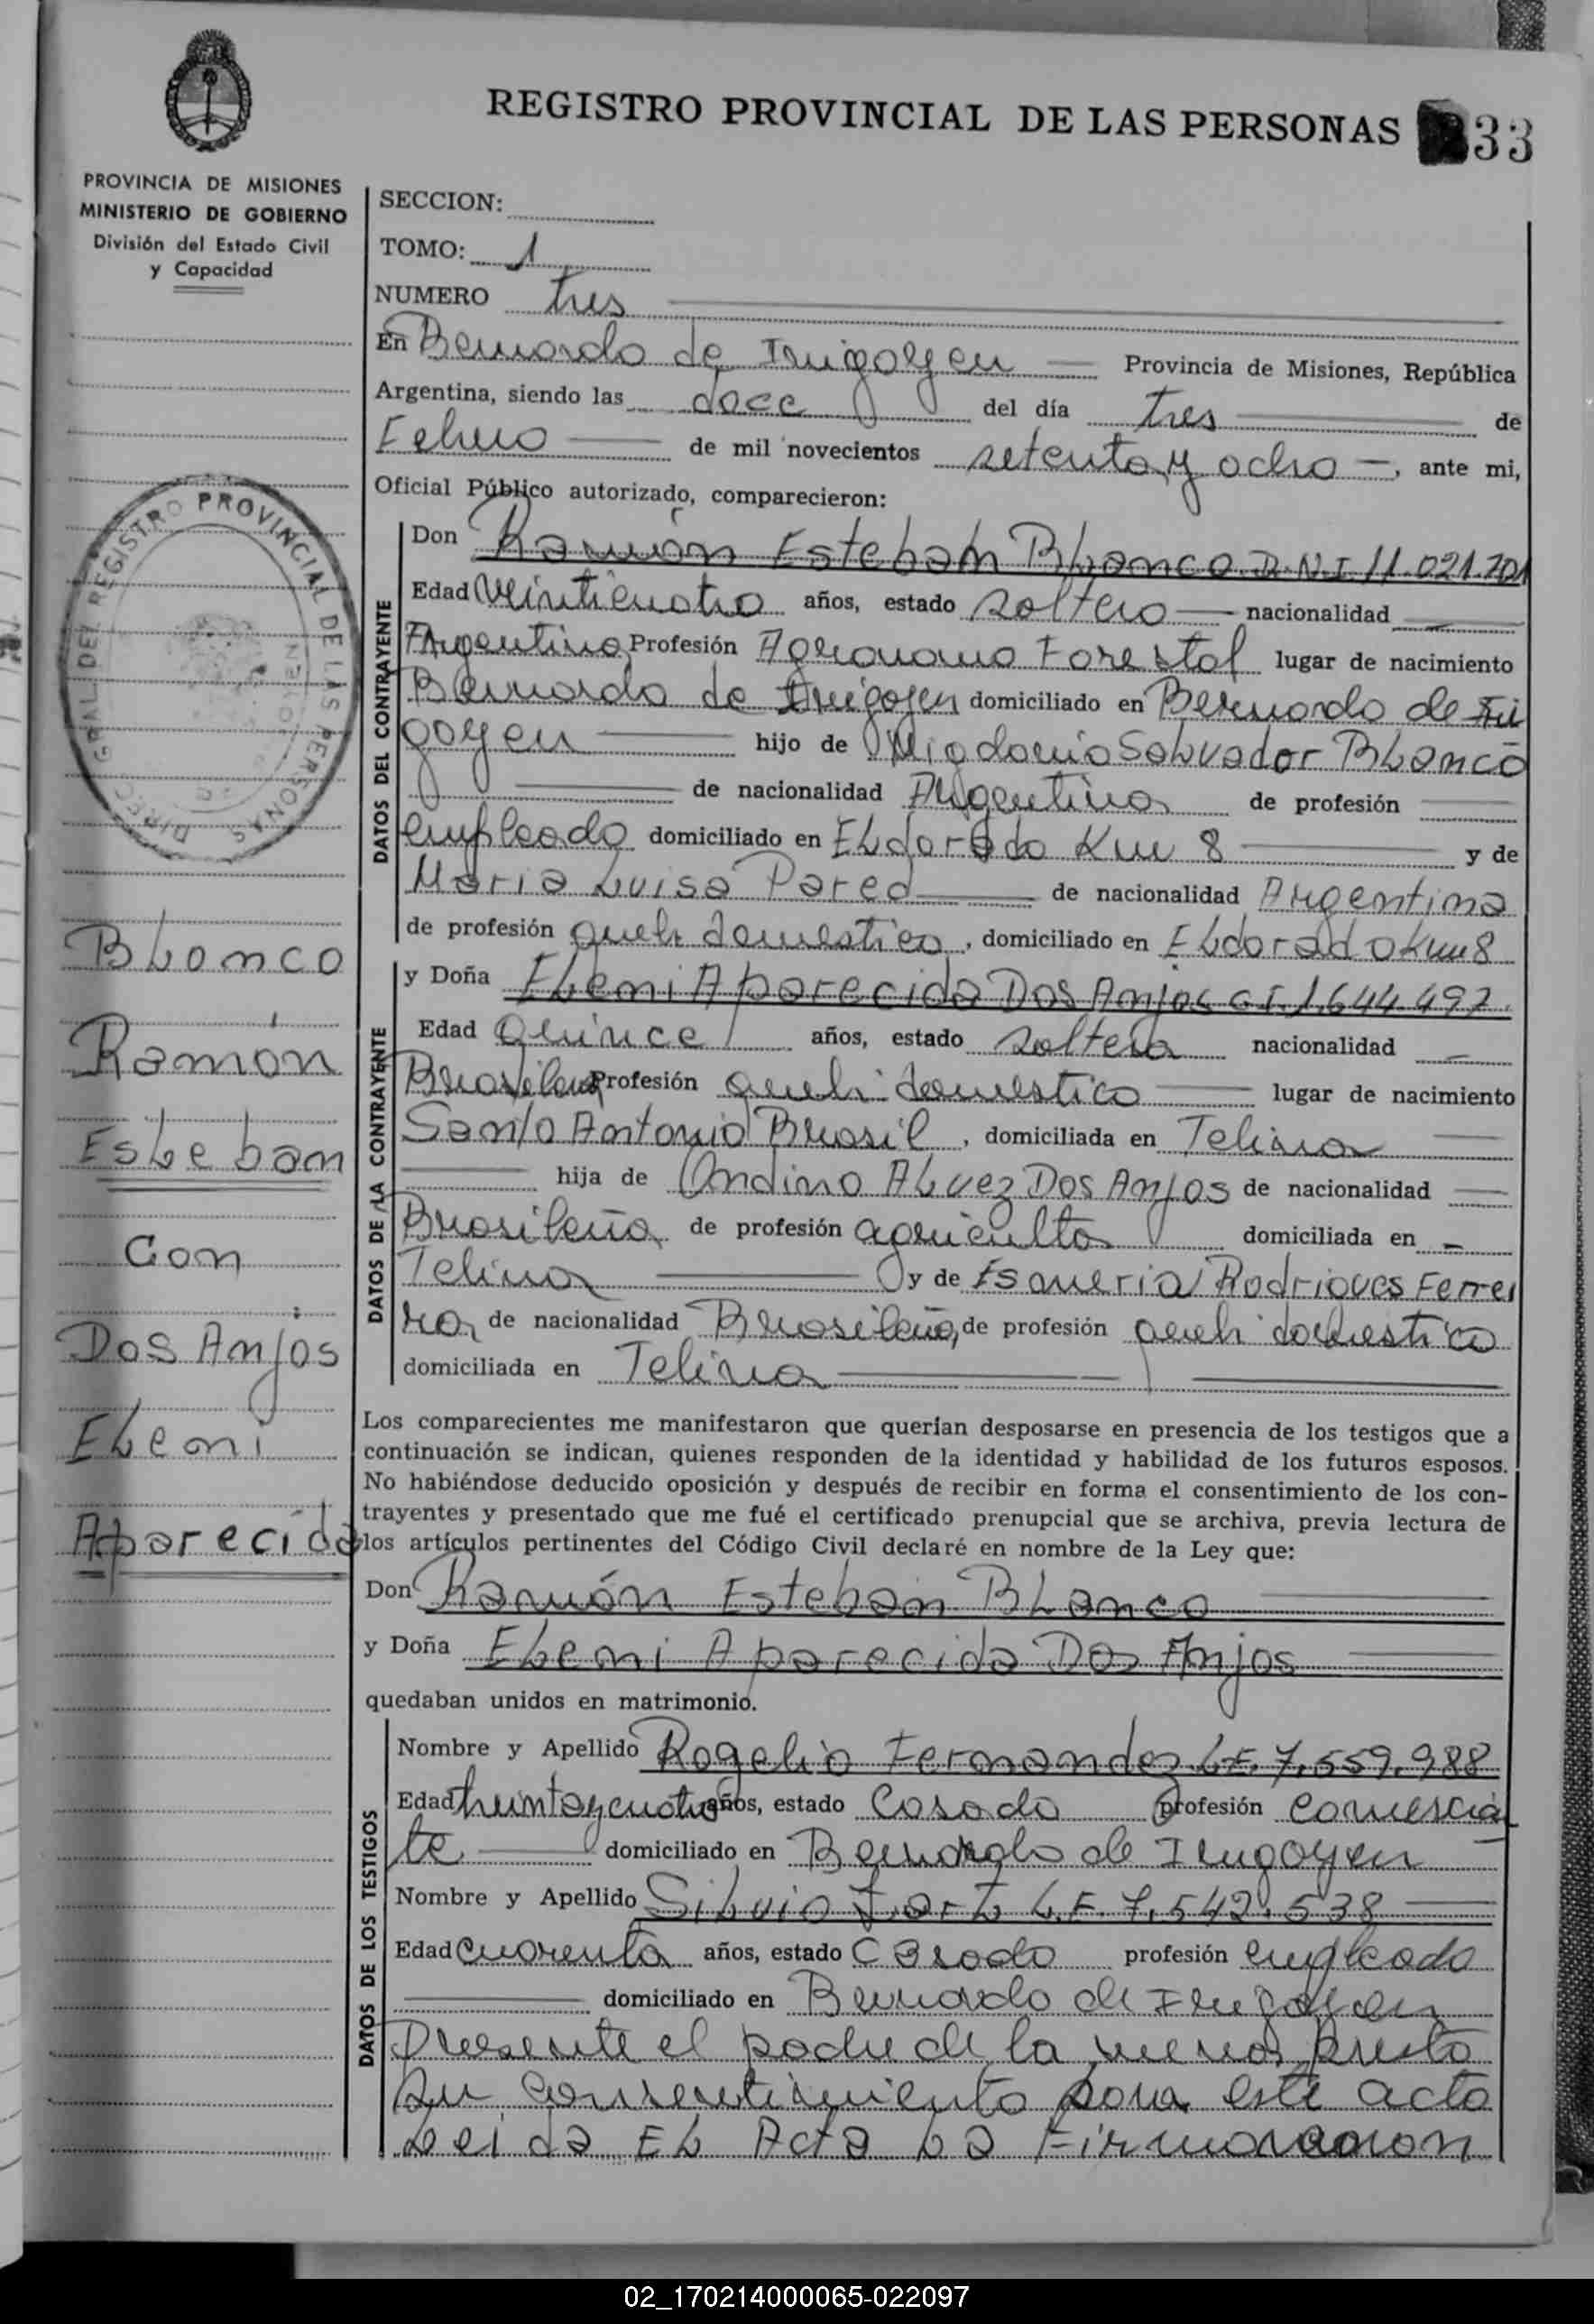 REGISTRO PROVINCIAL DE LAS PERSONAS 33
PROVINCIA DE MISIONES
MINISTERIO DE GOBIERNO
División del Estado Civil
y Capacidad
SECCION:
TOMO: 1
NUMERO tres
En Bernardo de Irigoyen Provincia de Misiones, República
Argentina, siendo las doce del día tres de
Febrero de mil novecientos setenta y ocho, ante mi,
Oficial Público autorizado, comparecieron:
DATOS DEL CONTRAYENTE
Don Ramón Esteban Blanco D.N.I 11.021.701
Edad Veinticuatro años, estado soltero nacionalidad
Argentino Profesión Agronomo Forestal lugar de nacimiento
Bernardo de Irigoyen domiciliado en Bernardo de Iri
goyen hijo de Salvador Blanco
de nacionalidad Argentina de profesión
empleado domiciliado en Eldorado Km 8 y de
Maria Luisa Pared de nacionalidad Argentina
de profesión queh domestico, domiciliado en Eldorado Km 8
DATOS DE LA CONTRAYENTE
y Doña Eleni Aparecida Dos Anjos C.I. 1.644.497
Edad Quince años, estado soltera nacionalidad
Brasileña Profesión queh. domestico lugar de nacimiento
Santo Antonio Brasil, domiciliada en
hija de Ondino Alvez Dos Anjos de nacionalidad
Brasileña de profesión agricultor domiciliada en
y de Esmeria Rodrigues Ferrei
ra de nacionalidad Brasileña, de profesión queh domestico
domiciliada en
Los comparecientes me manifestaron que querían desposarse en presencia de los testigos que a
continuación se indican, quienes responden de la identidad y habilidad de los futuros esposos.
No habiéndose deducido oposición y después de recibir en forma el consentimiento de los con-
trayentes y presentado que me fué el certificado prenupcial que se archiva, previa lectura de
los artículos pertinentes del Código Civil declaré en nombre de la Ley que:
Don Ramón Esteban Blanco
y Doña Eleni Aparecida Dos Anjos
quedaban unidos en matrimonio.
DATOS DE LOS TESTIGOS
Nombre y Apellido Rogelio Fernandez L.E. 7.559.988
Edad treinta y cuatro años, estado Casado profesión comercian
te domiciliado en Bernardo de Irigoyen
Nombre y Apellido Silvio L.E. 7.542.538
Edad cuarenta años, estado Casado profesión empleado
domiciliado en Bernardo de Irigoyen
Presente el padre de la menor presta
su consentimiento para este acto
Leida El Acta La Firmaron
DIREC GRAL DEL REGISTRO PROVINCIAL DE LAS PERSONAS
Blanco
Ramón
Esteban
Con
Dos Anjos
Eleni
Aparecida
02_170214000065-022097